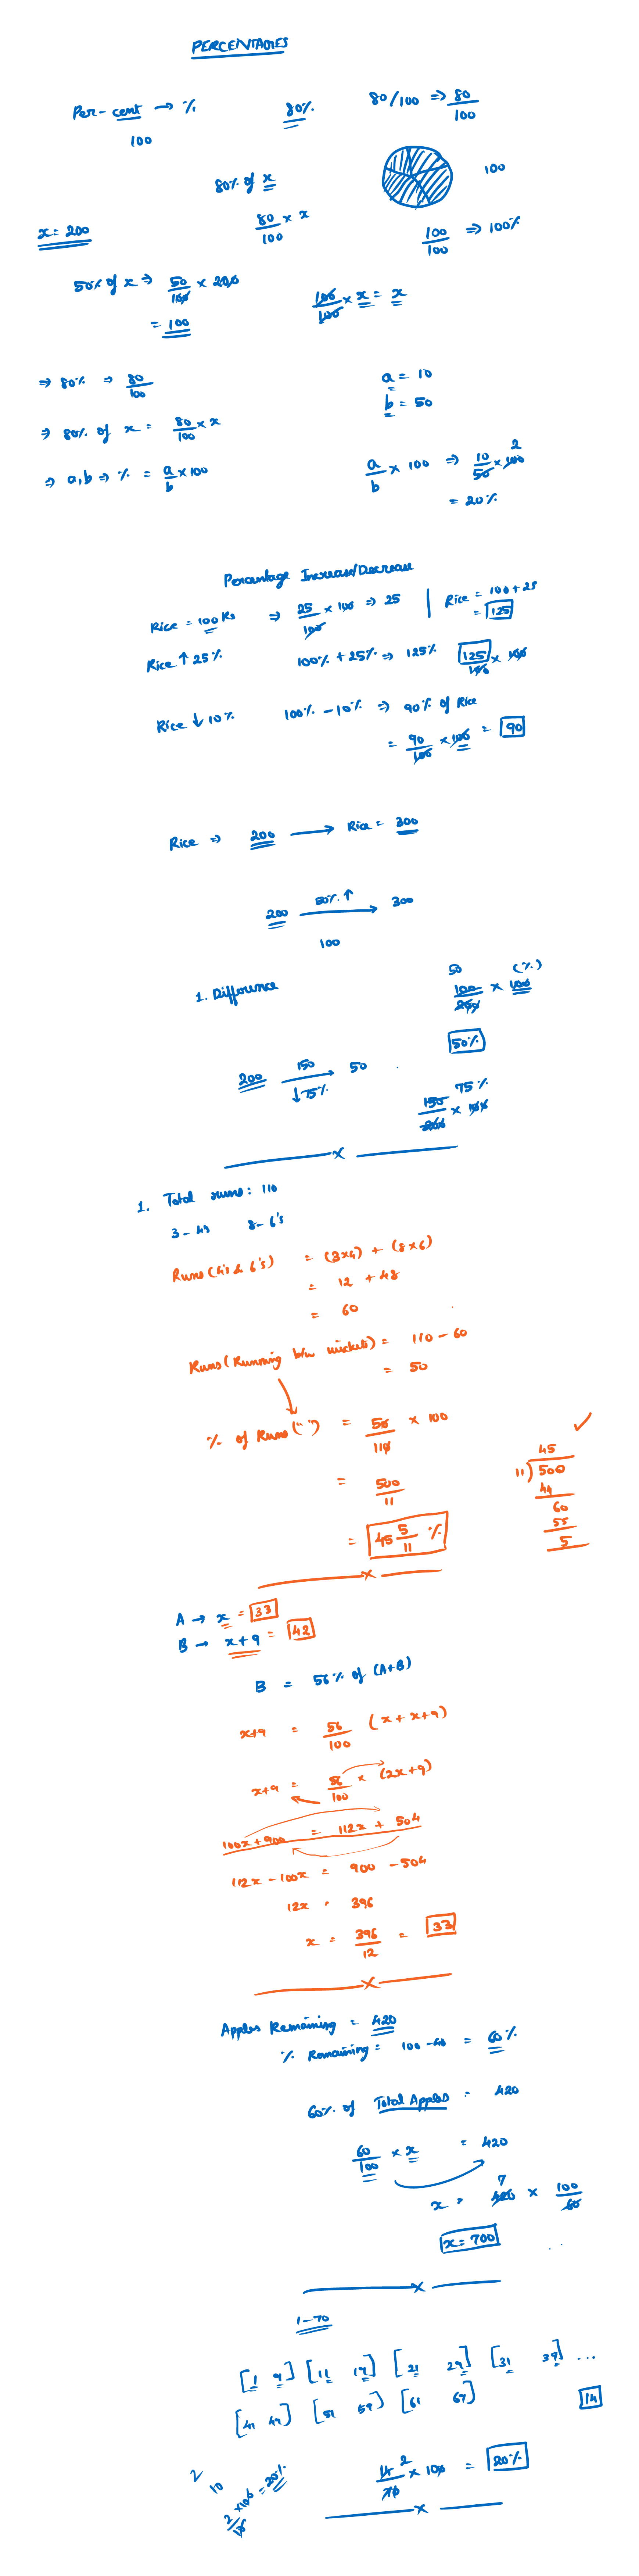 PERCENTAGES
Per-cent → %
100
80%
80/100 ⇒ 80/100
80% of x
80/100 × x
100
x = 200
100/100 ⇒ 100%
50% of x ⇒ 50/100 × 200
= 100
100/100 × x = x
⇒ 80% ⇒ 80/100
⇒ 80% of x = 80/100 × x
⇒ a,b ⇒ % = a/b × 100
a = 10
b = 50
a/b × 100 ⇒ 10/50 × 100 2
= 20%
Percentage Increase/Decrease
Rice = 100 Rs ⇒ 25/100 × 100 ⇒ 25 | Rice = 100 + 25
= 125
Rice ↑ 25% 100% + 25% ⇒ 125% 125/100 × 100
Rice ↓ 10% 100% - 10% ⇒ 90% of Rice
= 90/100 × 100 = 90
Rice ⇒ 200 → Rice = 300
200 50% ↑ → 300
100
1. Difference
50 (%)
100/200 × 100
50%
200 150 → 50
↓ 75%
75%
150/200 × 100
x
1. Total runs: 110
3 - 4s 8 - 6's
Runs (4's & 6's) = (3×4) + (8×6)
= 12 + 48
= 60
Runs (Running b/w wickets) = 110 - 60
= 50
% of Runs (" ") = 50/110 × 100
= 500/11
= 45 5/11 %
45
11) 500
44
60
55
5
x
A → x = 33
B → x+9 = 42
B = 56% of (A+B)
x+9 = 56/100 (x + x+9)
x+9 = 56/100 × (2x+9)
100x + 900 = 112x + 504
112x - 100x = 900 - 504
12x = 396
x = 396/12 = 33
x
Apples Remaining = 420
% Remaining = 100 - 40 = 60%
60% of Total Apples = 420
60/100 × x = 420
x = 420 7 × 100/60
x = 700
x
1-70
[1 9] [11 19] [21 29] [31 39] ...
[41 49] [51 59] [61 67]
14
14/70 2 × 100 = 20%
2
10
2/10 × 100 = 20%
x